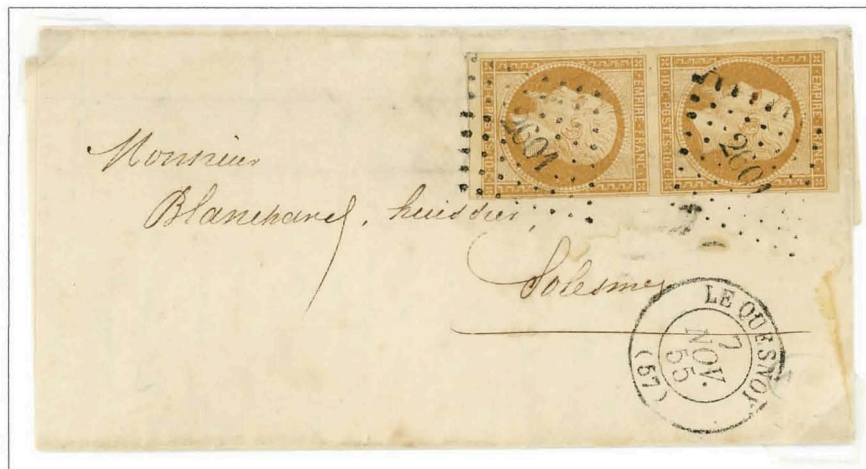 EMPIRE · FRANC ·
EMPIRE · FRANC ·
10 c · POSTES · 10 c
2601
2601
Monsieur
Blanchard, huissier,
Solesmes
LE QUESNOY
7
NOV.
55
(57)